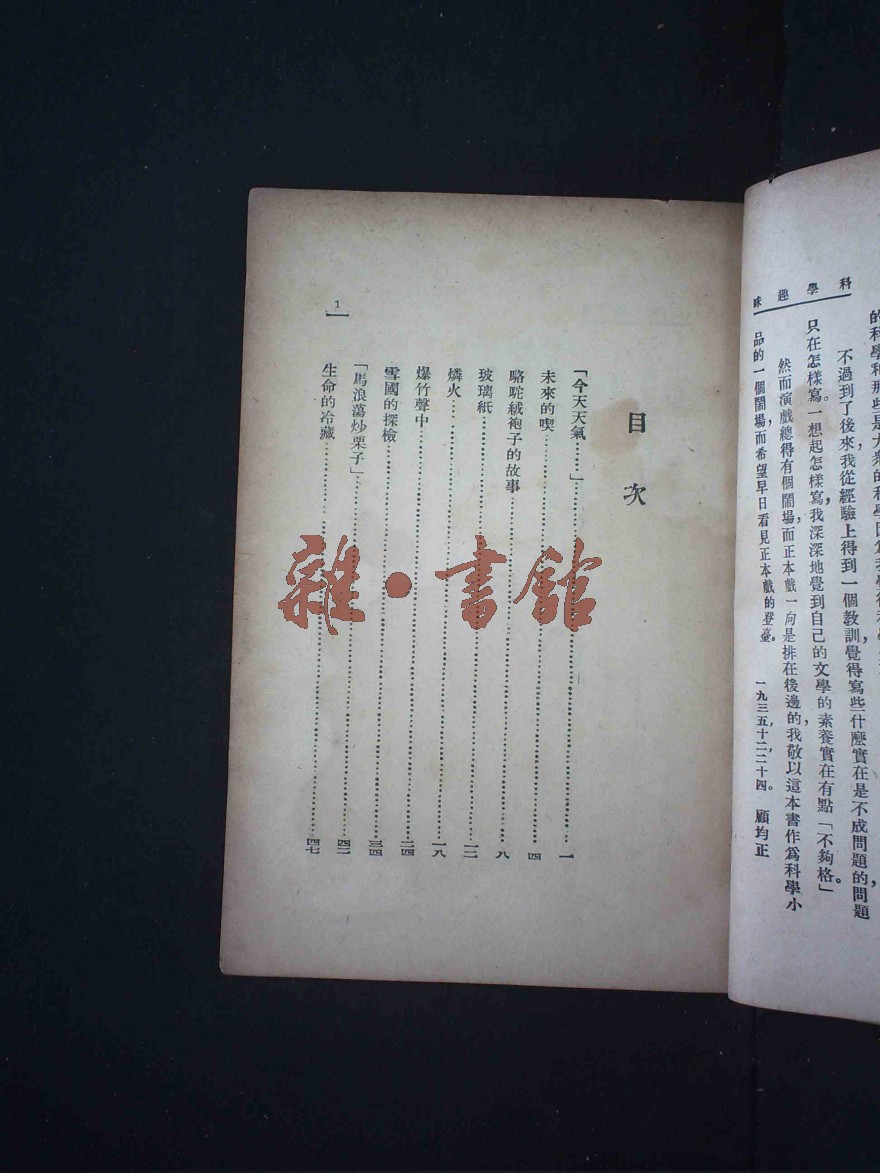 科學趣味
的科學和那些是大衆的科學
不過到了後來，我從經驗上得到一個教訓，覺得寫些什麼實在是不成問題的，問題
只在怎樣寫。一想起怎樣寫，我深深地覺到自己的文學的素養實在有點「不夠格」。
然而演戲總得有個鬧場，而正本戲一向是排在後邊的，我敬以這本書作爲科學小
品的一個鬧場，而希望早日看見正本戲的登臺。
一九三五，十二，二十四。 顧均正
目次
「今天天氣……」……一
未來的喫……四
駱駝絨袍子的故事……
玻璃紙……一二
燐火……
爆竹聲中……二四
雪國的探檢……三四
「馬浪蕩炒栗子」……四二
生命的冷藏……四七
1
雜·書館